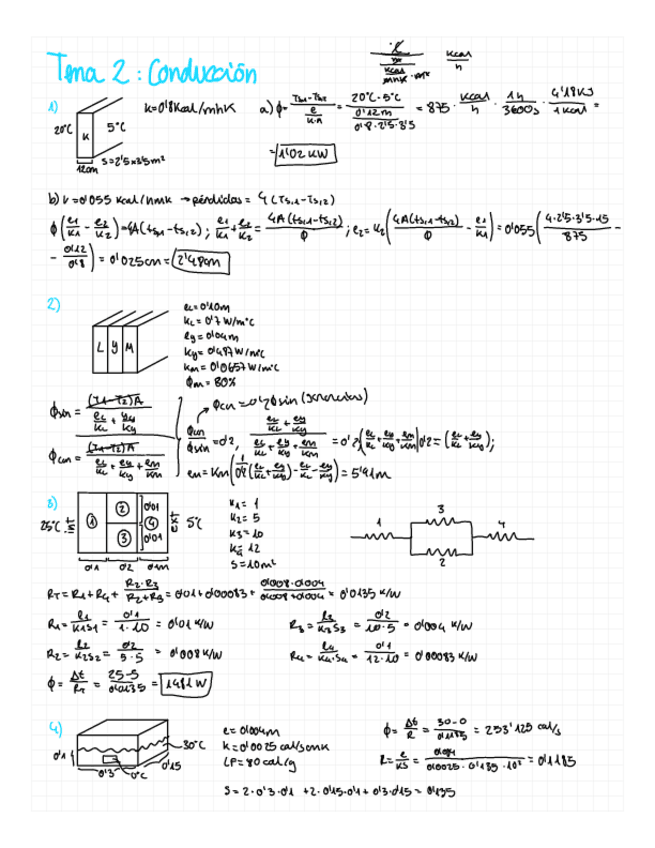 Tema 2: Conducción
kcal
h
1)
20°C
K
5°C
12cm
S=2'5x3'5m²
K=0'8Kcal/mhK
a) ϕ= Ts1-Ts2 / (e / K·A) = 20°C-5°C / (0'12m / 0'8·2'5·3'5) = 875 · kcal/h · 1h/3600s · 4'18KJ/1kcal =
= 1'02 KW
b) K=0'055 kcal/hmk → pérdidas = 4(Ts,1-Ts,2)
ϕ(e1/K1 - e2/K2)=4A(ts,1-ts,2); e1/K1 + e2/K2 = 4A(ts,1-ts,2)/ϕ; e2=K2(4A(ts,1-ts,2)/ϕ - e1/K1)=0'055(4·2'5·3'5·15/875 -
- 0'12/0'8) = 0'025cm = 2'48cm
2)
L Y M
eL=0'10m
KL=0'7 W/m°C
ey=0'04m
Ky=0'487W/m°C
Km=0'0657W/m°C
ϕm=80%
ϕsin = (T1-T2)A / (eL/KL + ey/Ky)
ϕcon = (T1-T2)A / (eL/KL + ey/Ky + em/Km)
ϕcon/ϕsin=0'2,
em=Km(
)=5'91m
3)
25°C
1 2 3 4
0'01
0'01
5°C
0'1 0'2 0'1m
K1= 1
K2= 5
K3=10
K4= 12
S=10m²
1 3 2 4
RT=R1+R4+ R2·R3/(R2+R3) = 0'01+0'00083+ 0'008·0'004/(0'008+0'004) = 0'0135 K/W
R1= e1/K1S1 = 0'1/1·10 = 0'01 K/W
R3= e3/K3S3 = 0'2/10·5 = 0'004 K/W
R2= e2/K2S2 = 0'2/5·5 = 0'008 K/W
R4= e4/K4·S4 = 0'1/12·10 = 0'00083 K/W
ϕ= Δt/RT = 25-5/0'0135 = 1481 W
4)
0'1
30°C
0'3
0°C
0'15
e=0'004m
K=0'0025 cal/scmk
LF=80cal/g
ϕ= Δt/R = 30-0/0'1185 = 253'125 cal/s
R= e/KS = 0'004/0'0025·0'135·10² = 0'1185
S=2·0'3·0'1 +2·0'15·0'1+0'3·0'15=0'135